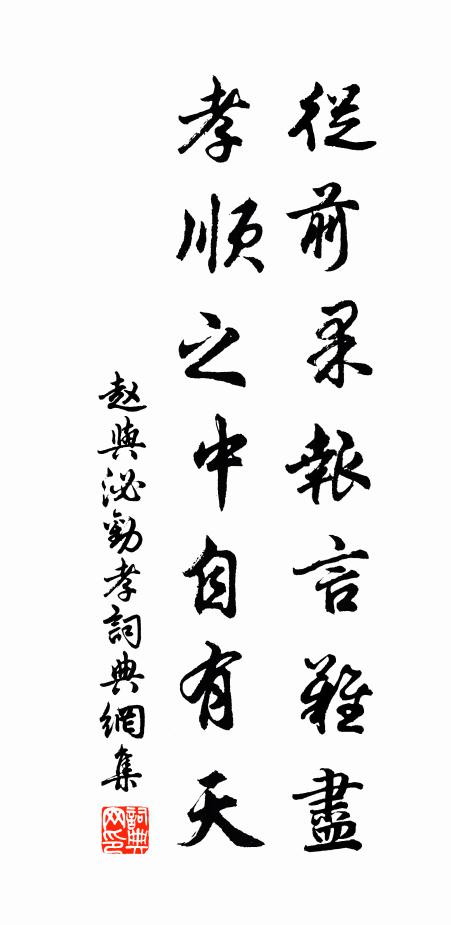 從前果報言難盡
孝順之中自有天
赵與泌勸孝詞典網集
詞典网印